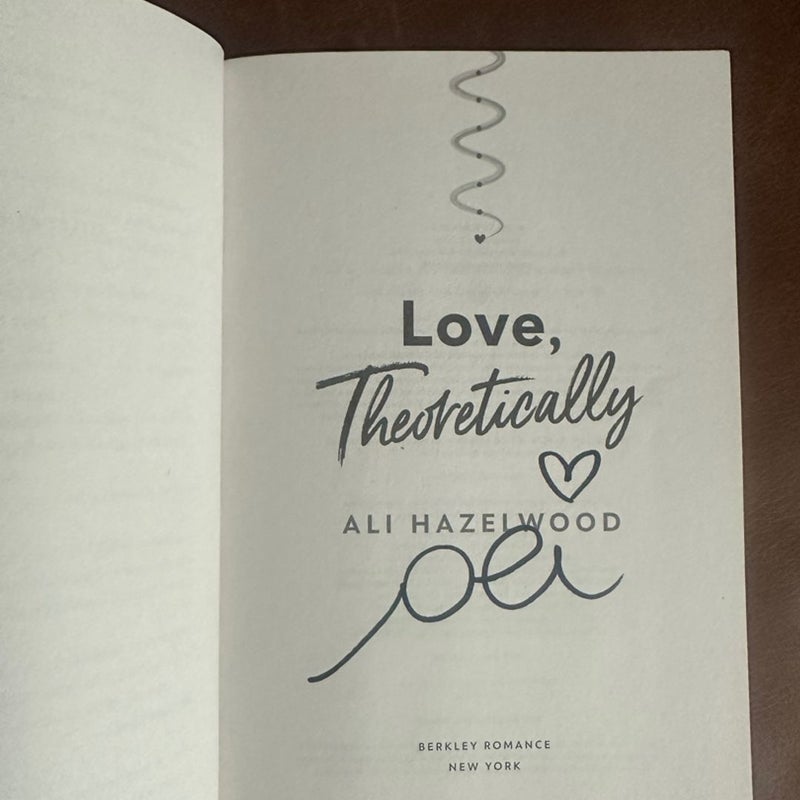 Love,
Theoretically
ALI HAZELWOOD
BERKLEY ROMANCE
NEW YORK